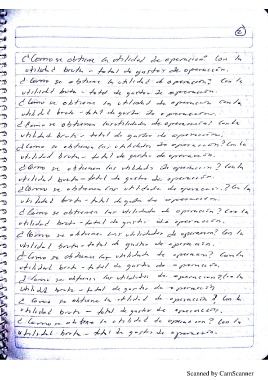 2
¿Como se obtiene la utilidad de operación? con la
utilidad bruta - total de gastos de operación.
¿Como se obtiene la utilidad de operación? Con la
utilidad bruta - total de gastos de operación.
¿Como se obtiene la utilidad de operación con la
utilidad bruta - total de gastos de operación.
¿Como se obtienen las utilidades de operación? Con la
utilidad bruta - total de gastos de operación.
¿Como se obtienen las utilidades de operación? Con la
utilidad bruta - total de gastos de operación.
¿Como se obtienen las utilidad de operación? Con la
utilidad bruta - total de gastos de operación.
¿Como se obtienen las utilidades de operación? Con la
utilidad bruta - total de gastos de operación.
¿Como se obtienen las utilidad de operación? con la
utilidad bruta - total de gastos de operación.
¿Como se obtienen las utilidades de operación? Con la
utilidad bruta - total de gastos de operación.
¿Como se obtienen las utilidad de operación? Con la
utilidad bruta - total de gastos de operación.
¿Como se obtienen las utilidades de operación? Con la
utilidad bruta - total de gastos de operación
¿Como se obtiene la utilidad de operación? Con la
utilidad bruta - total de gastos de operación.
¿Como se obtiene la utilidad de operación? Con la
utilidad bruta - total de gastos de operación.
Scanned by CamScanner